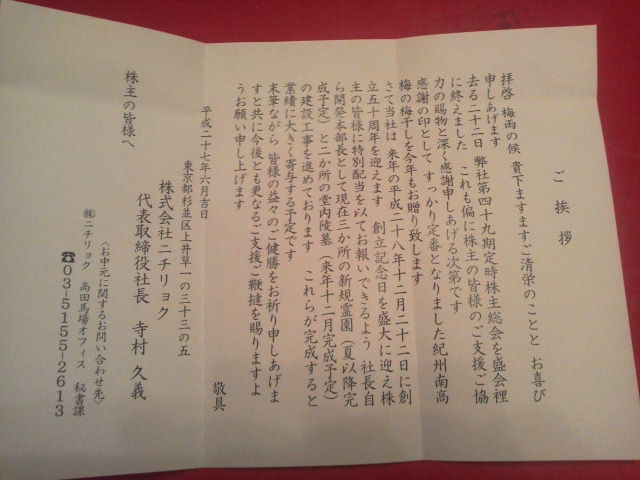 ご挨拶
拝啓 梅雨の候 貴下ますますご清栄のことと お喜び
申しあげます
去る二十二日 弊社第四十九期定時株主総会を盛会裡
に終えました これも偏に株主の皆様のご支援ご協
力の賜物と深く感謝申しあげる次第です
感謝の印として すっかり定番となりました紀州南高
梅の梅干しを今年もお贈り致します
さて当社は 来年の平成二十八年十二月二十二日に創
立五十周年を迎えます 創立記念日を盛大に迎え株
主の皆様に特別配当を以てお報いできるよう 社長自
ら開発本部長として現在三か所の新規霊園(夏以降完
成予定)と二か所の堂内陵墓(来年十二月完成予定)
の建設工事を進めております これらが完成すると
業績に大きく寄与する予定です
末筆ながら 皆様の益々のご健勝をお祈り申しあげま
すと共に今後とも更なるご支援ご鞭撻を賜りますよ
うお願い申し上げます
敬具
平成二十七年六月吉日
東京都杉並区上井草一の三十三の五
株式会社ニチリョク
代表取締役社長 寺村 久義
株主の皆様へ
〈お中元に関するお問い合わせ先〉
㈱ニチリョク 高田馬場オフィス 秘書課
☎03-5155-2613